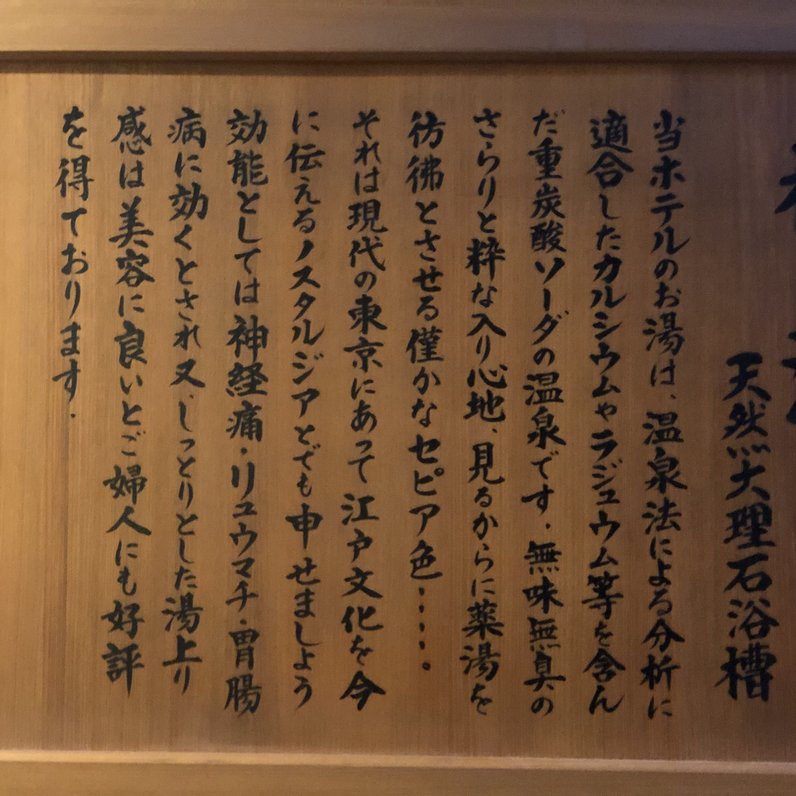 天然大理石浴槽
当ホテルのお湯は、温泉法による分析に
適合したカルシウムやラジュウム等を含ん
だ重炭酸ソーダの温泉です.無味無臭の
さらりと粋な入り心地、見るからに薬湯を
彷彿とさせる僅かなセピア色・・・・。
それは現代の東京にあって江戸文化を今
に伝えるノスタルジアとでも申せましょう
効能としては神経痛・リュウマチ・胃腸
病に効くとされ又、しっとりとした湯上り
感は美容に良いとご婦人にも好評
を得ております.